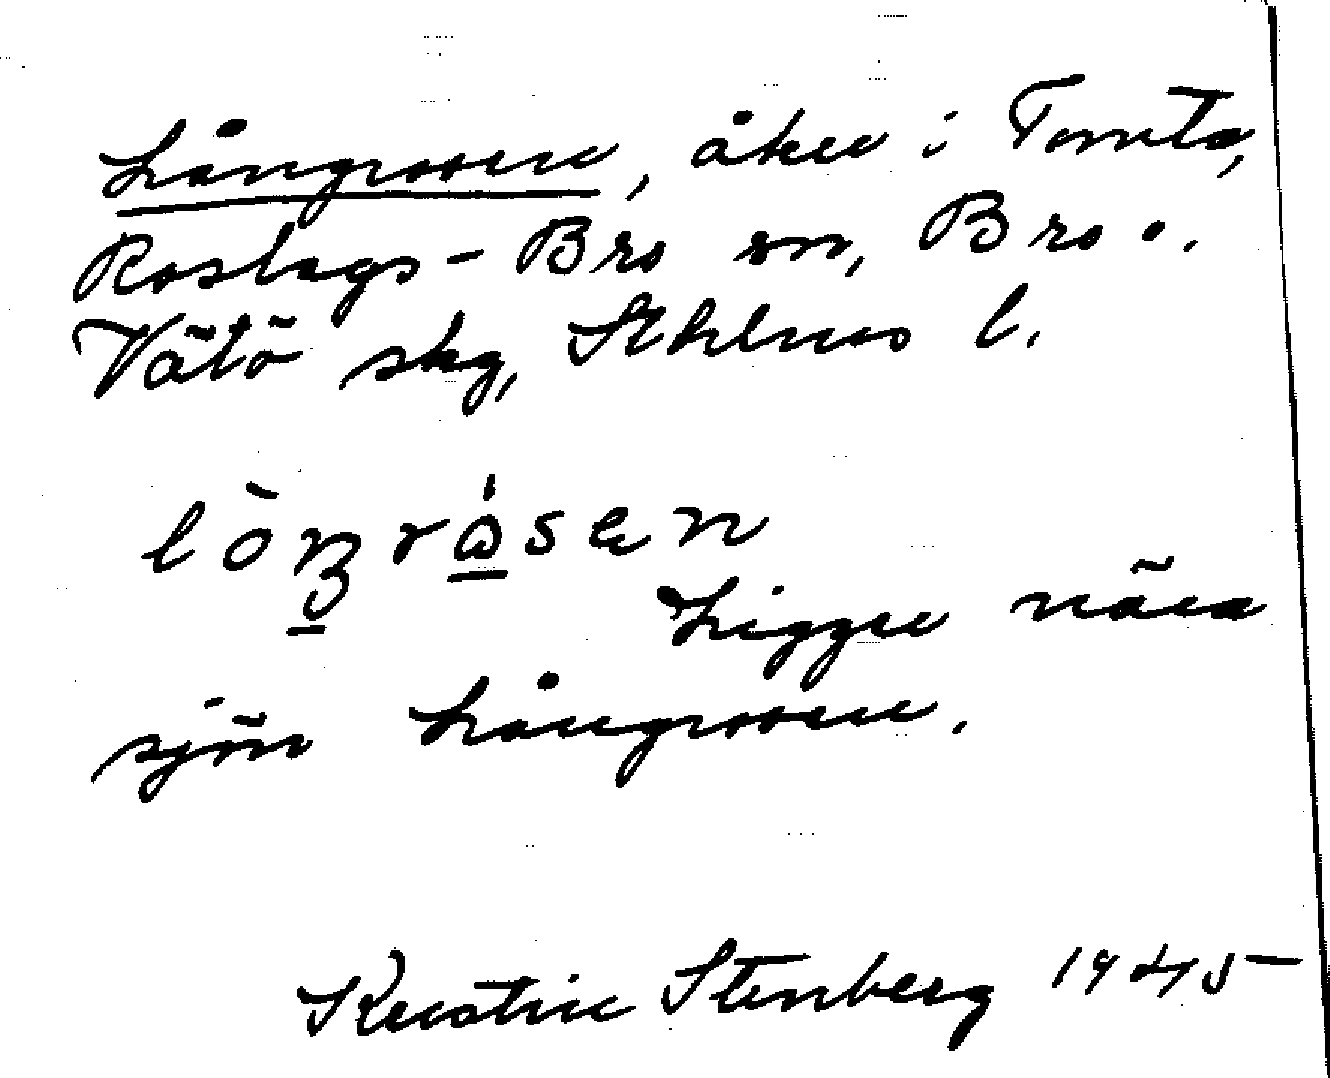 Långrosen, åker i Tomta,
Roslags-Bro sn, Bro o.
Vätö skg, Sthlms l.
Ligger nära
sjön Långrosen.
Kerstin Stenberg 1945